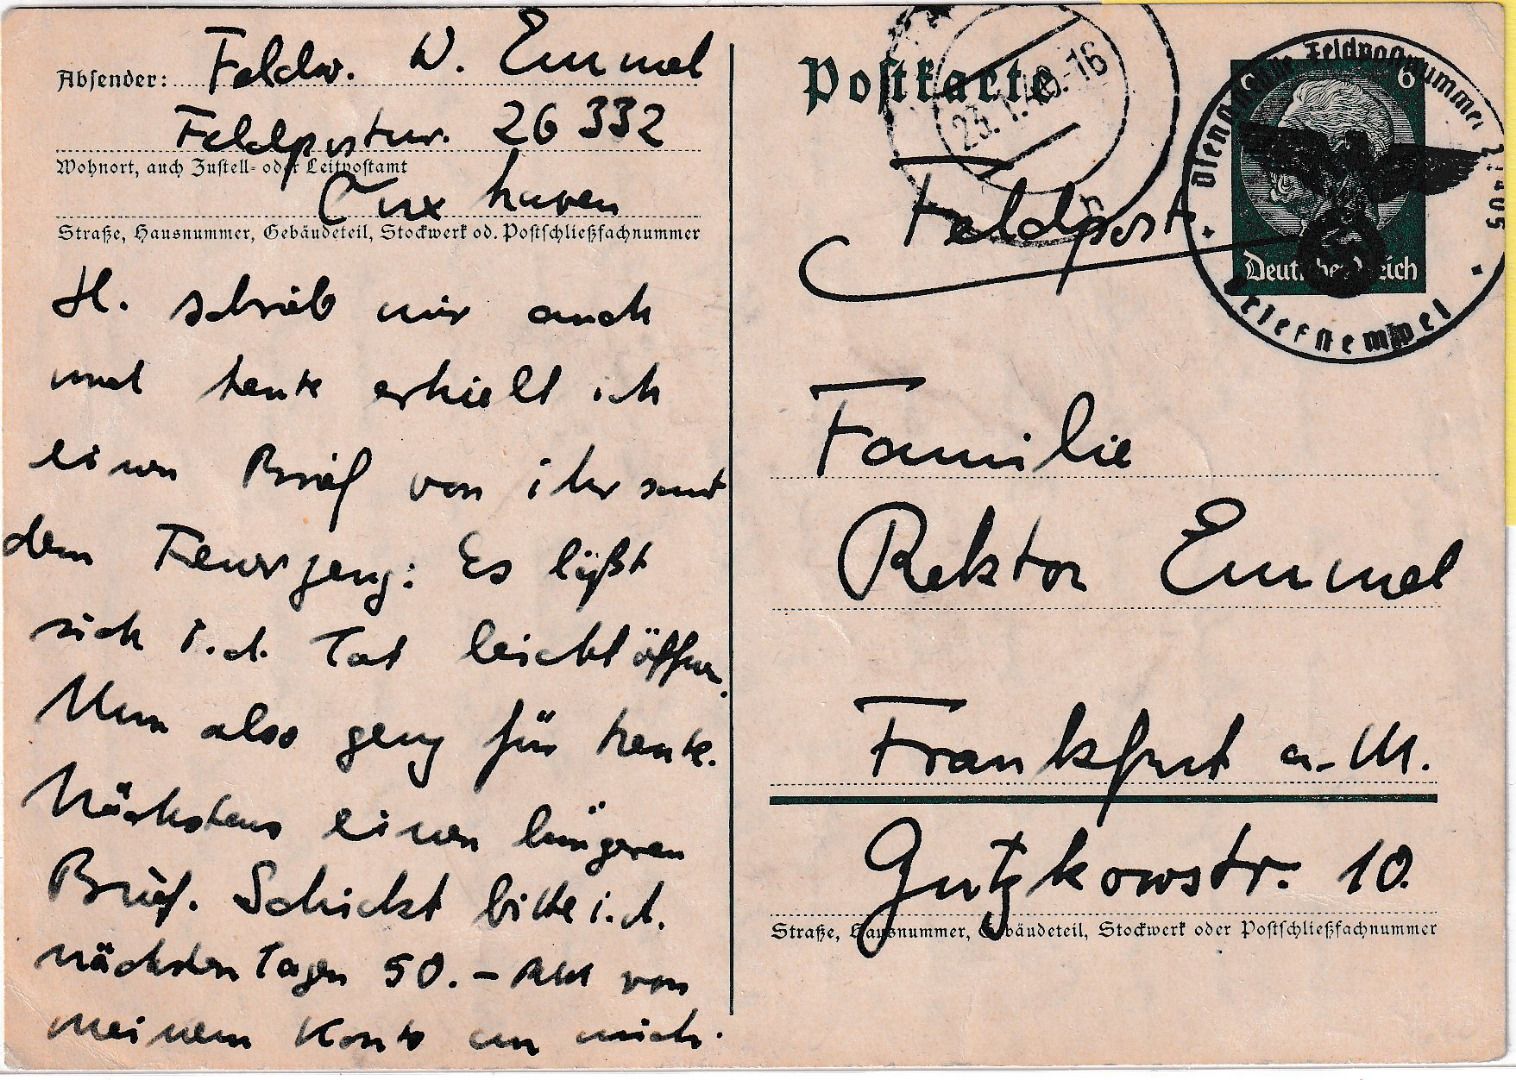 Absender: Feldw. W. Emmel
Feldpostnr. 26 332
Wohnort, auch Zustell- oder Leitpostamt
Cuxhaven
Straße, Hausnummer, Gebäudeteil, Stockwerk od. Postschließfachnummer
H. schrieb mir auch
und heute erhielt ich
einen Brief von ihr samt
dem Feuerzeug: Es läßt
sich i. d. Tat leicht öffnen.
Nun also genug für heute.
Nächstens einen längeren
Brief. Schickt bitte i. d.
nächsten Tagen 50.- RM von
meinem Konto an mich.
Postkarte
23.1.40.-16
Feldpost
6
Deutsches Reich
Dienststelle Feldpostnummer
Briefstempel
Familie
Rektor Emmel
Frankfurt a. M.
Gutzkowstr. 10.
Straße, Hausnummer, Gebäudeteil, Stockwerk oder Postschließfachnummer